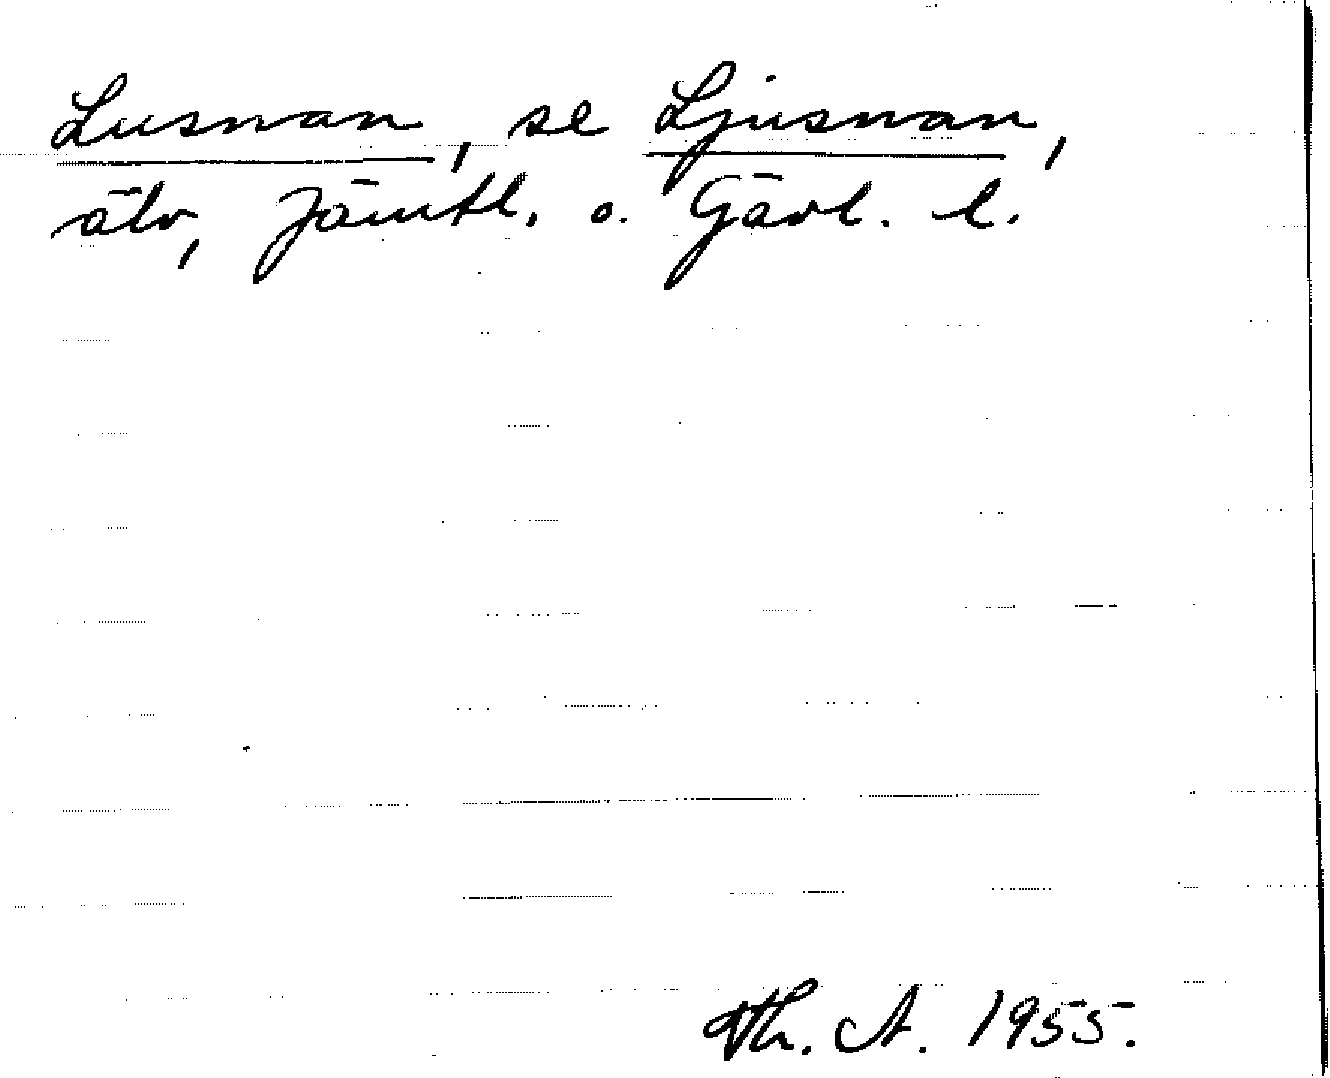 Lusnan, se Ljusnan,
älv, Jämtl. o. Gävl. l.
Th. A. 1955.